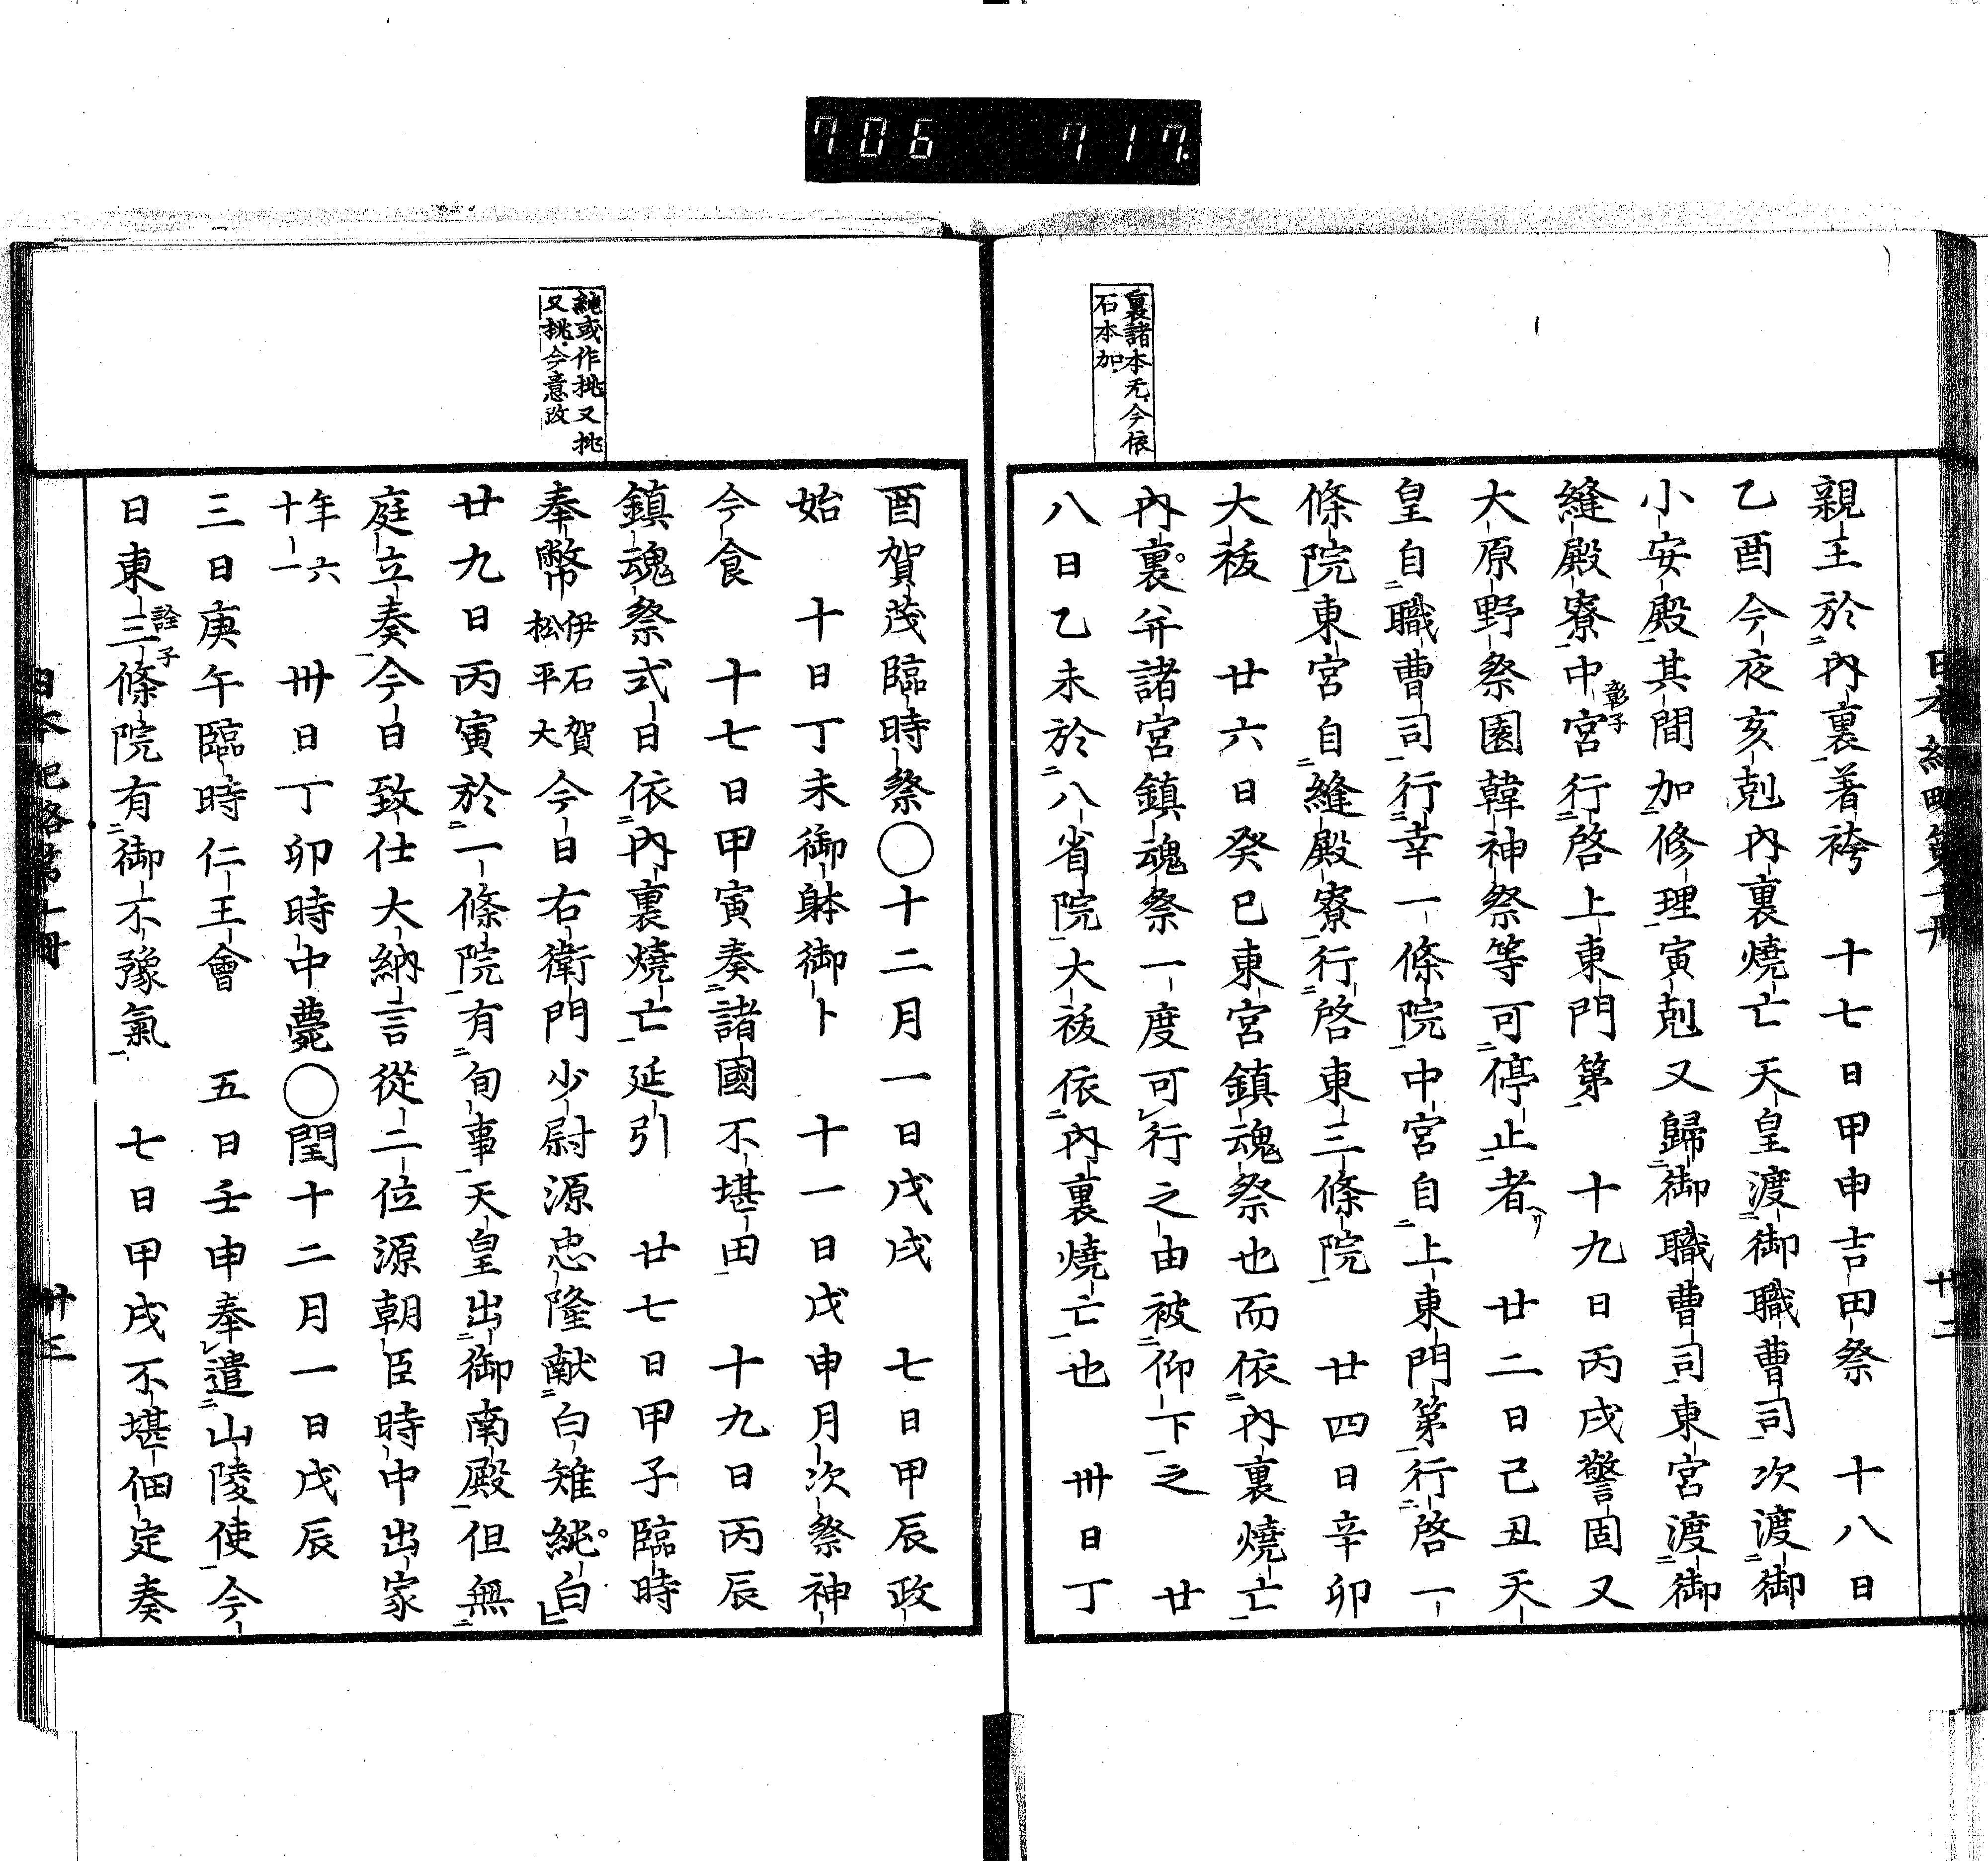 706 717.
裏諸本无今依
石本加
親王於内裏著袴 十七日甲申吉田祭 十八日
乙酉今夜亥剋内裏燒亡天皇渡御職曹司次渡御
小安殿其間加修理寅剋又歸御職曹司東宮渡御
縫殿寮中宮彰子行啓上東門第 十九日丙戌警固又
大原野祭園韓神祭等可停止者 廿二日己丑天
皇自職曹司行幸一條院中宮自上東門第行啓一
條院東宮自縫殿寮行啓東三條院 廿四日辛卯
大祓 廿六日癸巳東宮鎮魂祭也而依内裏燒亡
内裏并諸宮鎮魂祭一度可行之由被仰下之 廿
八日乙未於八省院大祓依内裏燒亡也 卅日丁
純或作挑又挑
又挑今意改
酉賀茂臨時祭〇十二月一日戊戌 七日甲辰政
始 十日丁未御躰御卜 十一日戊申月次祭神
今食 十七日甲寅奏諸國不堪田 十九日丙辰
鎮魂祭式日依内裏燒亡延引 廿七日甲子臨時
奉幣伊石賀松平大今日右衛門少尉源忠隆献白雉純白
廿九日丙寅於一條院有旬事天皇出御南殿但無
庭立奏今日致仕大納言從二位源朝臣時中出家
年六十一 卅日丁卯時中薨〇閏十二月一日戊辰
三日庚午臨時仁王會 五日壬申奉遣山陵使今
日東三條院詮子有御不豫氣 七日甲戌不堪佃定奏